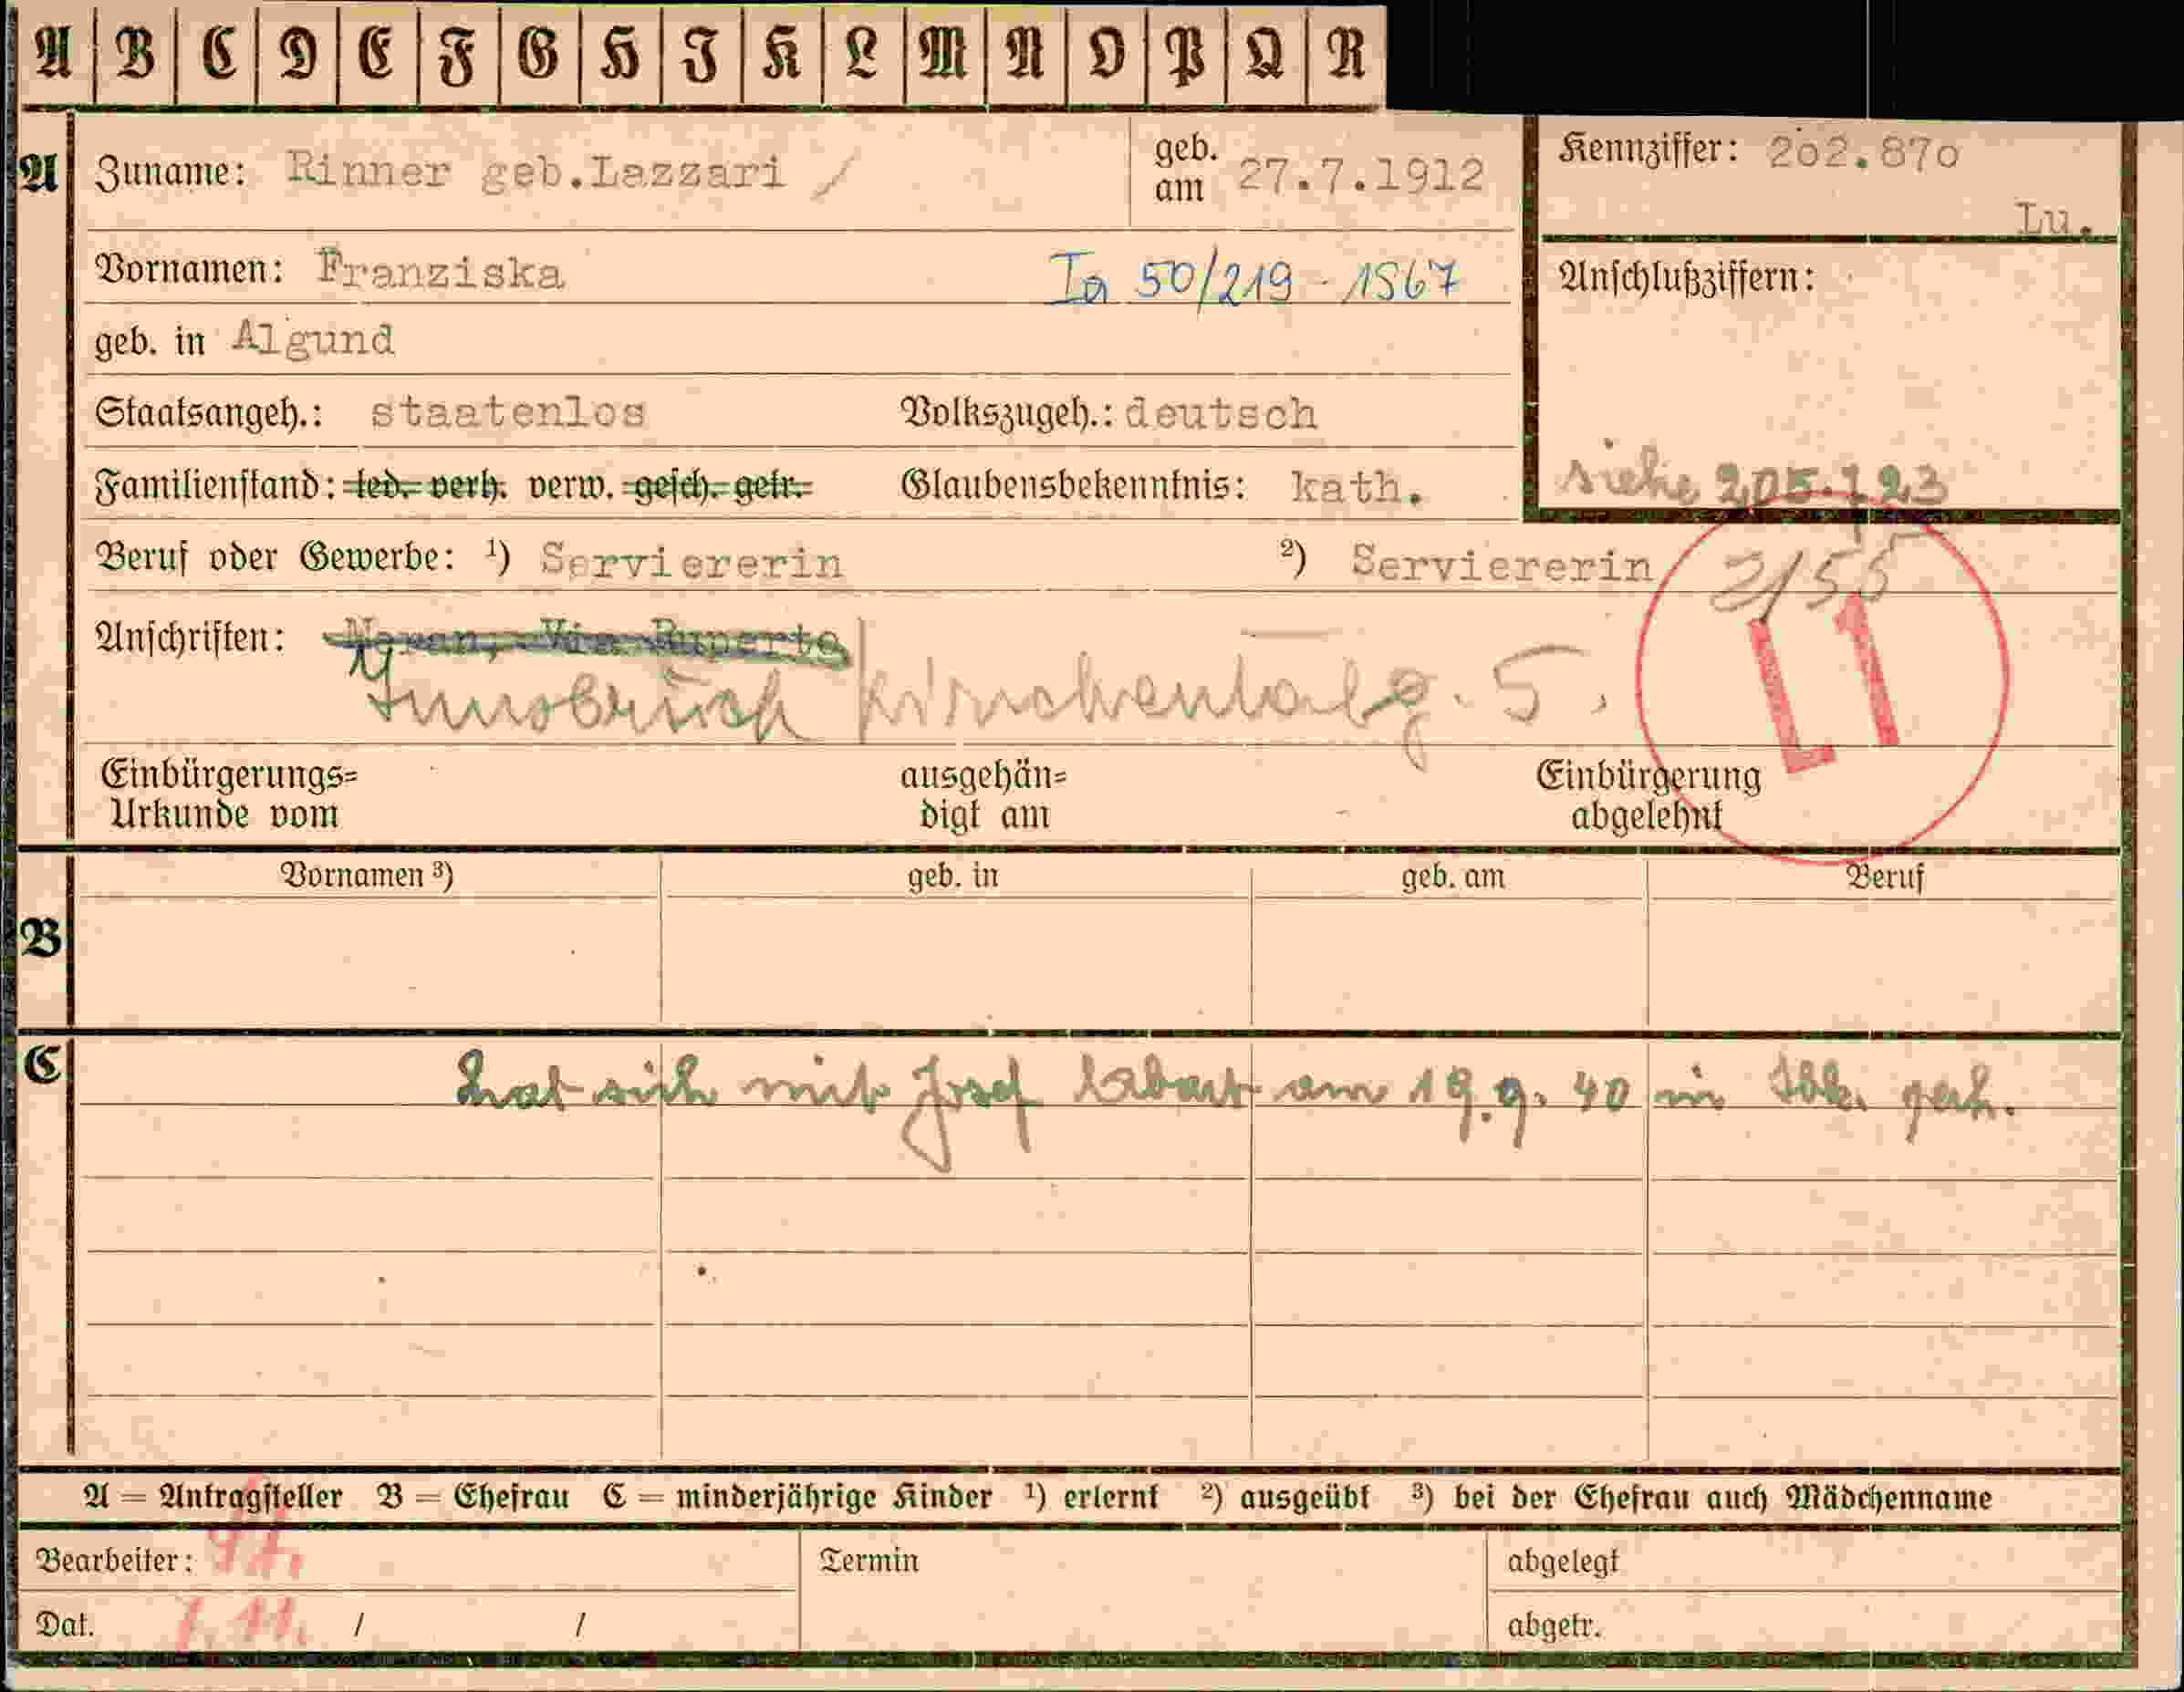 A B C D E F G H I K L M N O P Q R
A Zuname: Rinner geb.Lazzari /
geb. am 27.7.1912
Kennziffer: 202.870
Lu.
Vornamen: Franziska
Ia 50/219 - 1567
Anschlußziffern:
geb. in Algund
Staatsangeh.: staatenlos Volkszugeh.: deutsch
siehe 205.123
Familienstand: led. verh. verw. gesch. getr. Glaubensbekenntnis: kath.
Beruf oder Gewerbe: ¹) Serviererin ²) Serviererin
2155
Anschriften: Meran, Via Ruperto
Innsbruck 5,
L1
Einbürgerungs=
Urkunde vom
ausgehän=
digt am
Einbürgerung
abgelehnt
B
Vornamen ³) geb. in geb. am Beruf
C
hat sich mit Josef am 19.9.40 in Ibk.
A = Antragsteller B = Ehefrau C = minderjährige Kinder ¹) erlernt ²) ausgeübt ³) bei der Ehefrau auch Mädchenname
Bearbeiter:
Termin
abgelegt
Dat. 1.11. / /
abgetr.